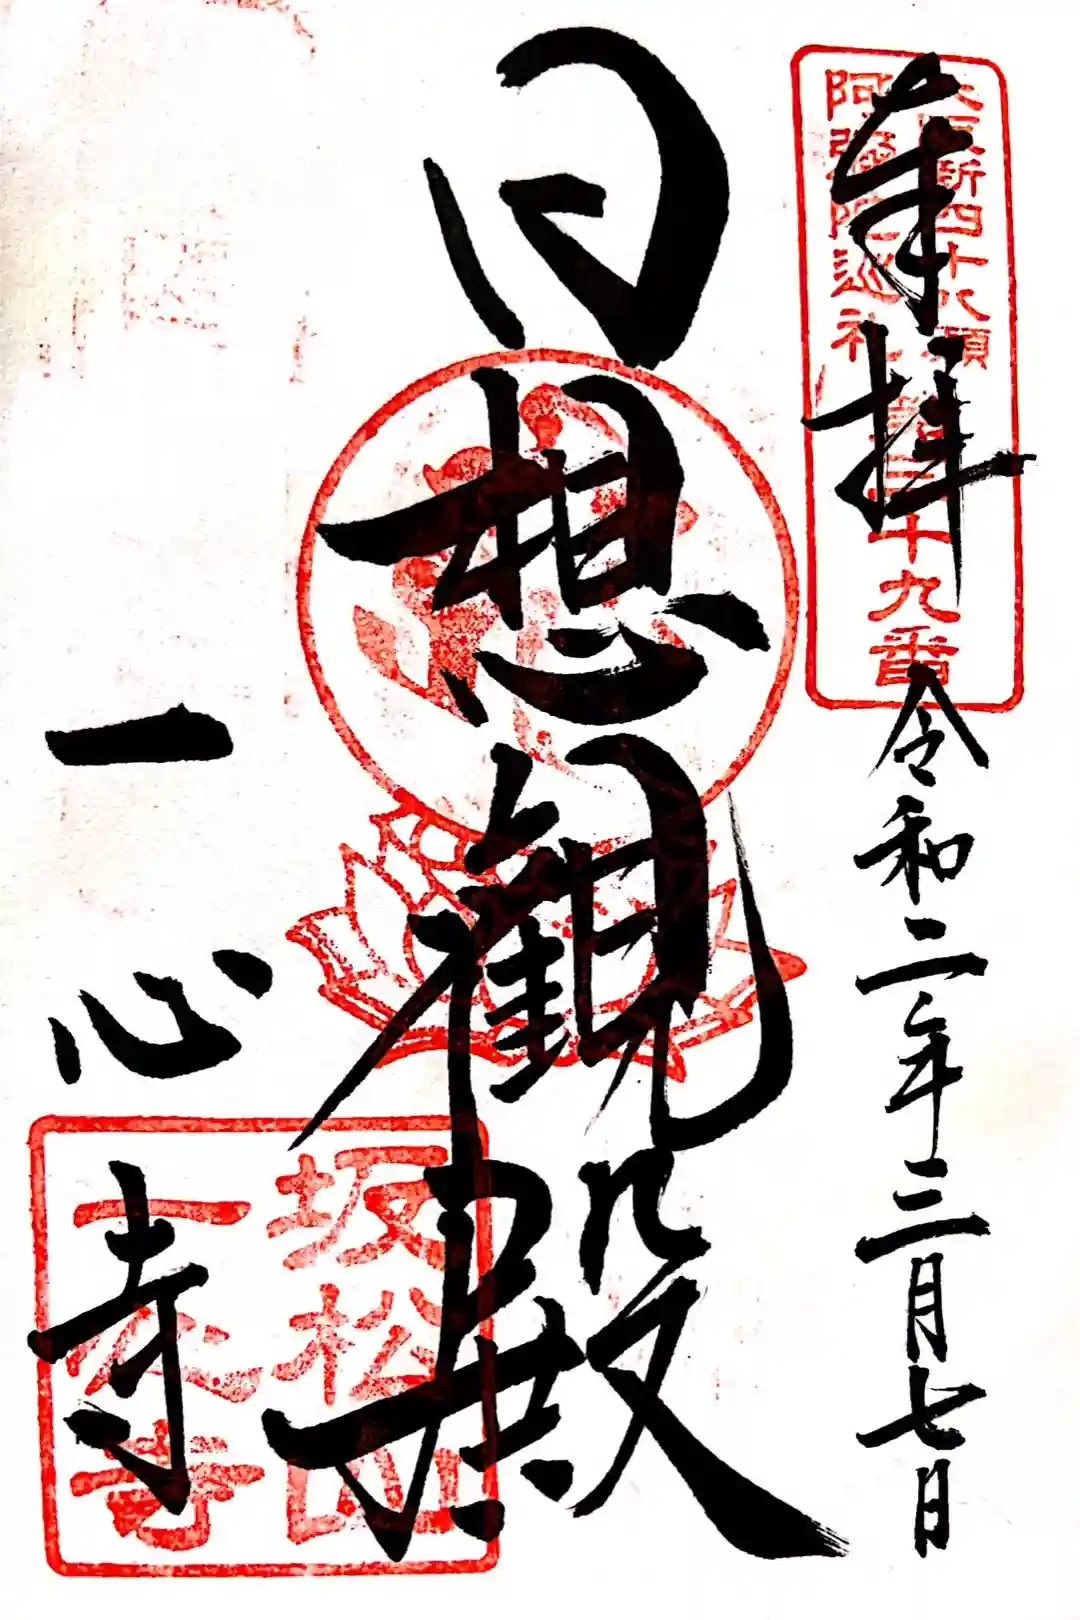 奉拝
大坂新四十八願
阿彌陀巡礼
第三十九番
令和二年三月七日
日想觀殿
一心寺
坂松山
一心寺